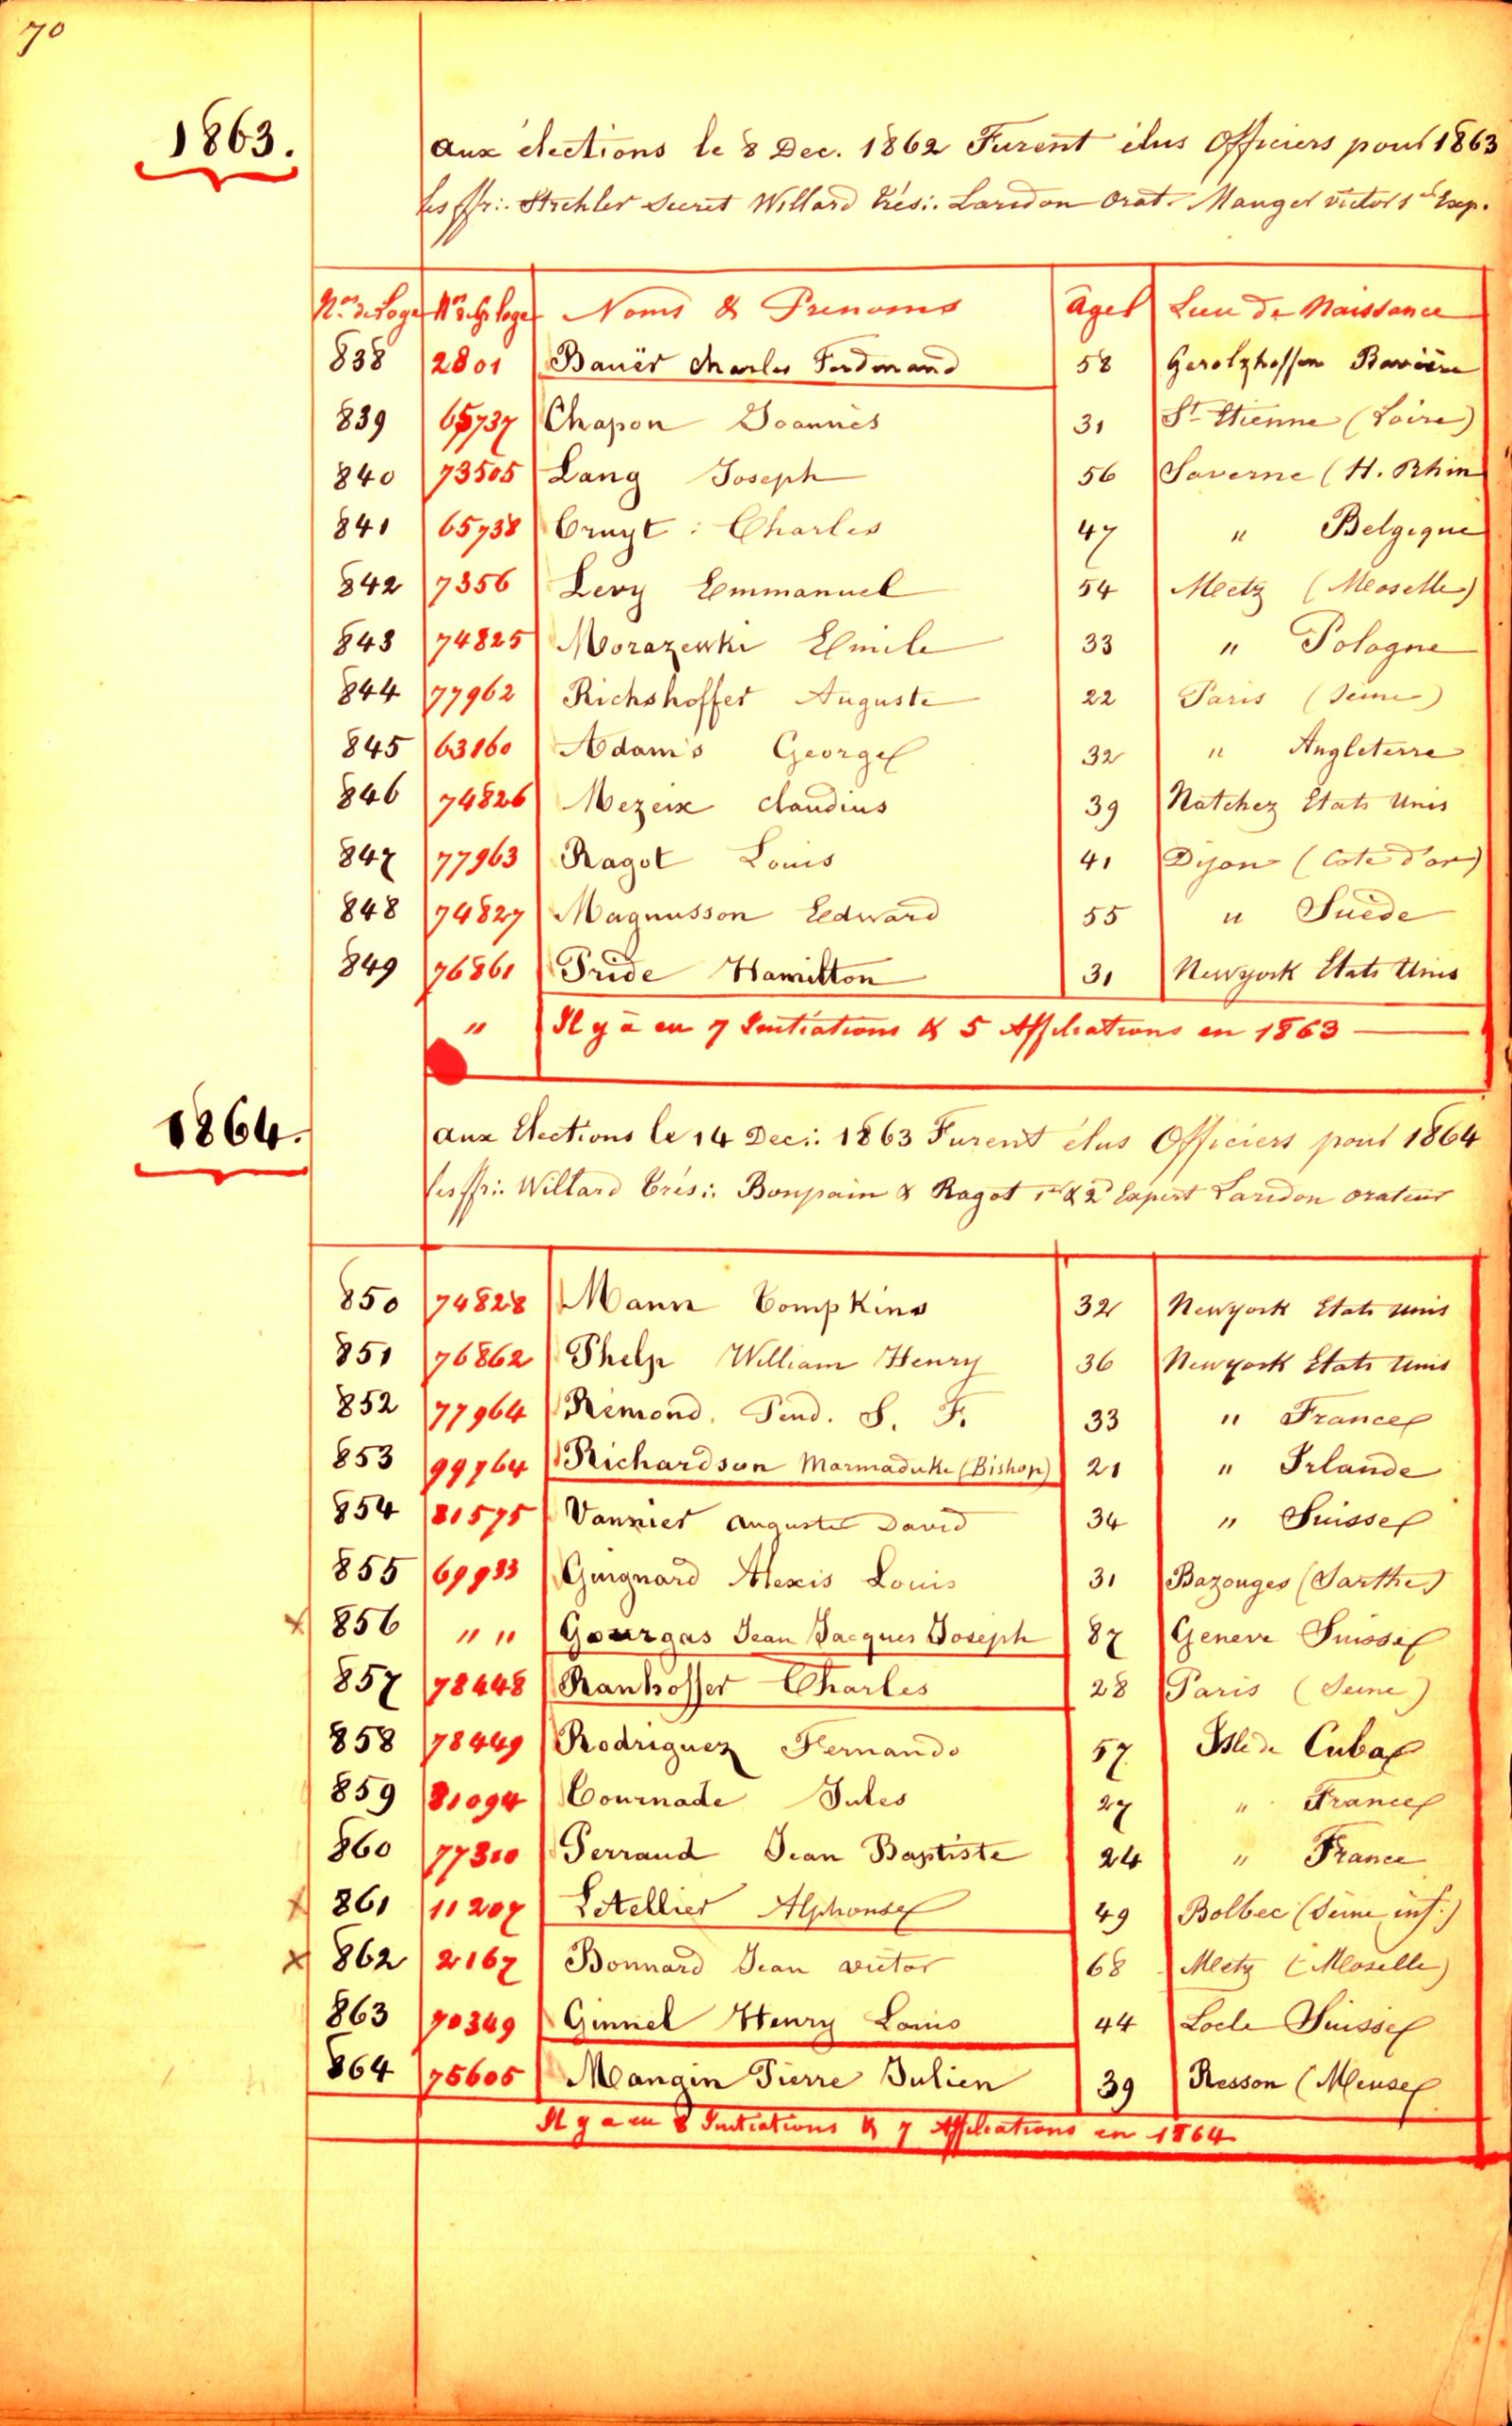 70
1863.
aux élections le 8 Dec. 1862 Furent élus Officiers pour 1863
les ffr∴ Strehler Secret Willard trés∴ Laridon Orat. Manget victor 1er Exp.
Nos de Loge Nos de Gr loge Noms & Prenoms âges Lieu de Naissance
838 2801 Bauër Charles Ferdinand 58 Gerolzhoffen Bavière
839 65737 Chapon Joannès 31 St Etienne (Loire)
840 73505 Lang Joseph 56 Saverne (H. Rhin
841 65738 Cruyt : Charles 47 " Belgique
842 7356 Levy Emmanuel 54 Metz (Moselle)
843 74825 Morazewki Emile 33 " Pologne
844 77962 Richshoffer Auguste 22 Paris (Seine)
845 63160 Adam's George 32 " Angleterre
846 74826 Mezeix Claudius 39 Natchez Etats Unis
847 77963 Ragot Louis 41 Dijon (Cote d'or)
848 74827 Magnusson Edward 55 " Suède
849 76861 Pride Hamilton 31 Newyork Etats Unis
" Il y a eu 7 Initiations & 5 Affiliations en 1863
1864.
aux Elections le 14 Dec∴ 1863 Furent élus Officiers pour 1864
les ffr∴ Willard trés∴ Bonpain & Ragot 1er & 2d Expert Laridon orateur
850 74828 Mann Tompkins 32 Newyork Etats unis
851 76862 Phelp William Henry 36 Newyork Etats Unis
852 77964 Rémond. Ferd. S. F. 33 " France
853 99764 Richardson Marmaduke (Bishop) 21 " Irlande
854 81575 Vannier Auguste David 34 " Suisse
855 69933 Guignard Alexis Louis 31 Bazouges (Sarthe)
x 856 " " Gourgas Jean Jacques Joseph 87 Geneve Suisse
857 78448 Ranhoffer Charles 28 Paris (Seine)
858 78449 Rodriguez Fernando 57. Isle de Cuba
859 81094 Cournade Jules 27 " France
860 77310 Perraud Jean Baptiste 24 " France
x 861 11207 Letellier Alphonse 49 Bolbec (Seine inf.)
x 862 2167 Bonnard Jean victor 68 Metz (Moselle)
863 70349 Ginnel Henry Louis 44 Locle Suisse
864 75605 Mangin Pierre Julien 39 Resson (Meuse
Il y a eu 8 Initiations & 7 Affiliations en 1864